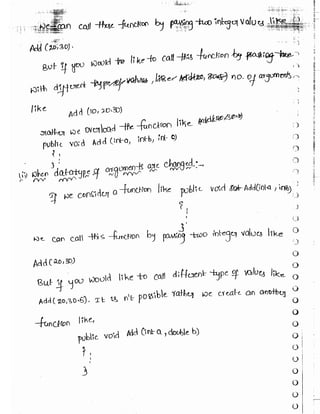 We can call these function by passing two integer values like
Add (20,30).
But If you would to like to call this function by passing
with different types/values, like no. of arguments,
like Add (10, 20,30)
rather we Overload the function like
public void Add (int a, int b, int c)
{
}
ii) When datatype of arguments are changed:-
If we consider a function like public void Add(int a, int b)
{
}
We can call this function by passing two integer values like
Add(20,30)
But If you would like to call different type of values like
Add( 20,30.6). It is n't possible rather we create an another
function like,
public void Add (int a, double b)
{
}